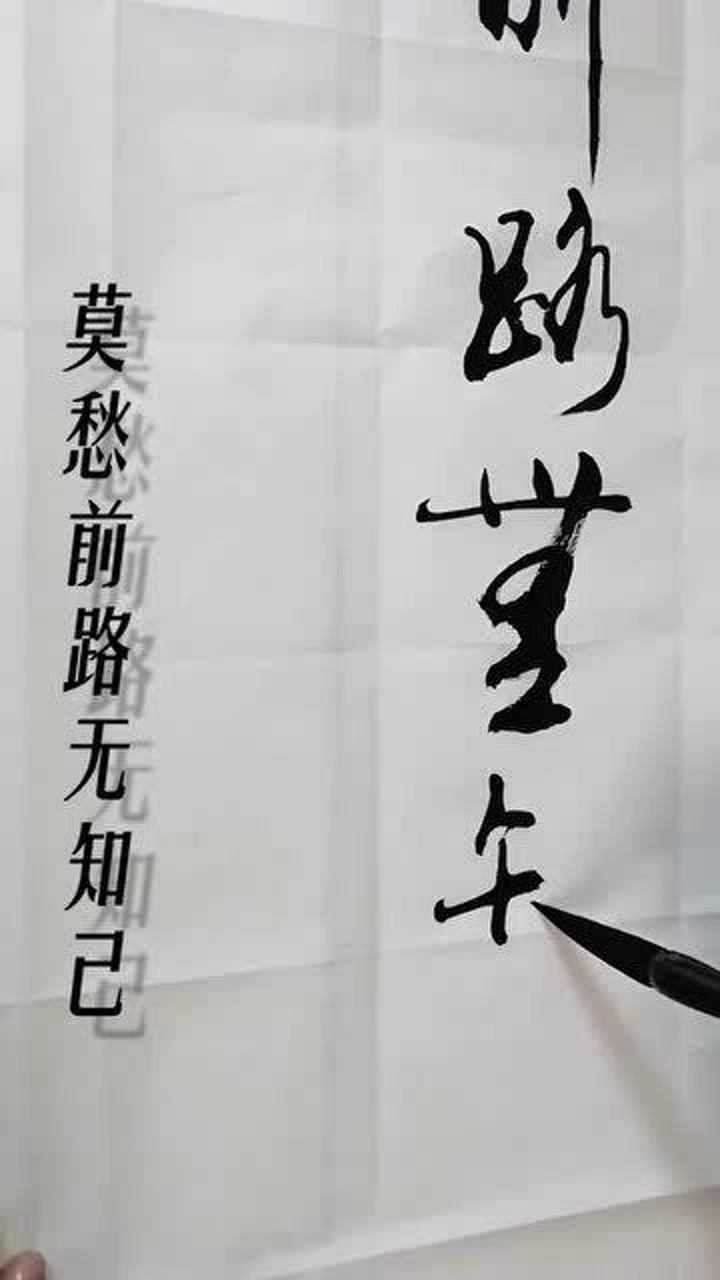 前路無
莫愁前路无知己